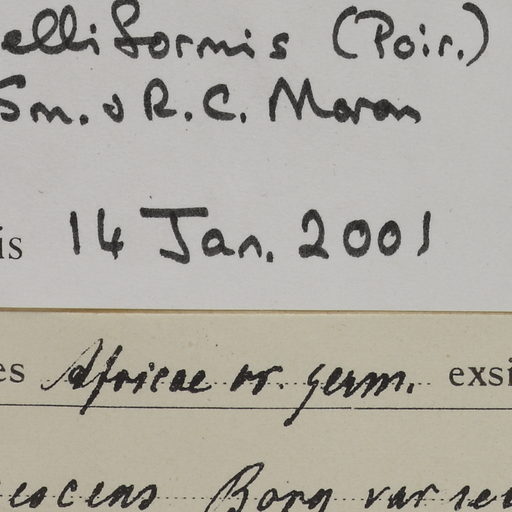 elliformis (Poir.)
Sm. & R. C. Moran
is 14 Jan. 2001
es Africae or. germ. exsi
Bong var